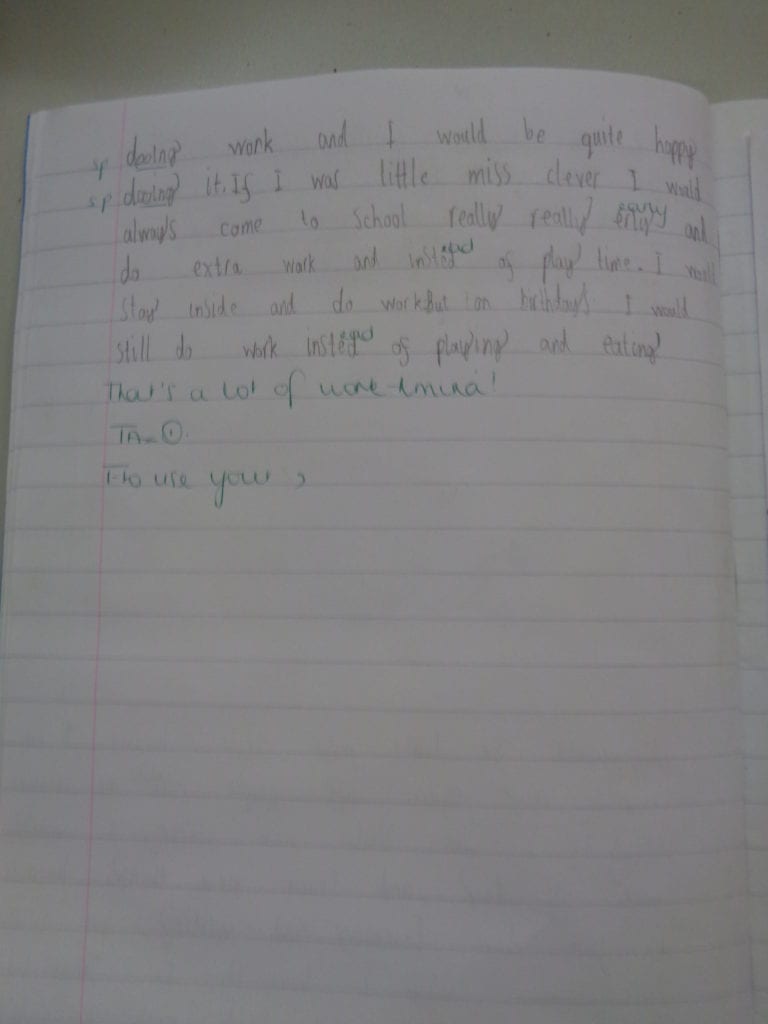 sp dooing work and I would be quite happy
sp dooing it. If I was little miss clever I would
always come to school really really erly early and
do extra work and insted ead of play time. I would
stay inside and do work But on birthdays I would
still do work insted ead of playing and eating
That's a lot of work Amina!
TA - 1
T-to use your ,